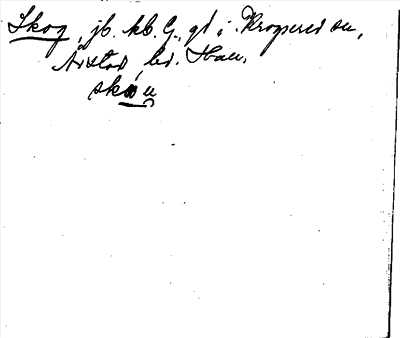 Skog, jb. kb. G., gd i Krogsered sn,
Årstad, hd. Hall.
skɷu